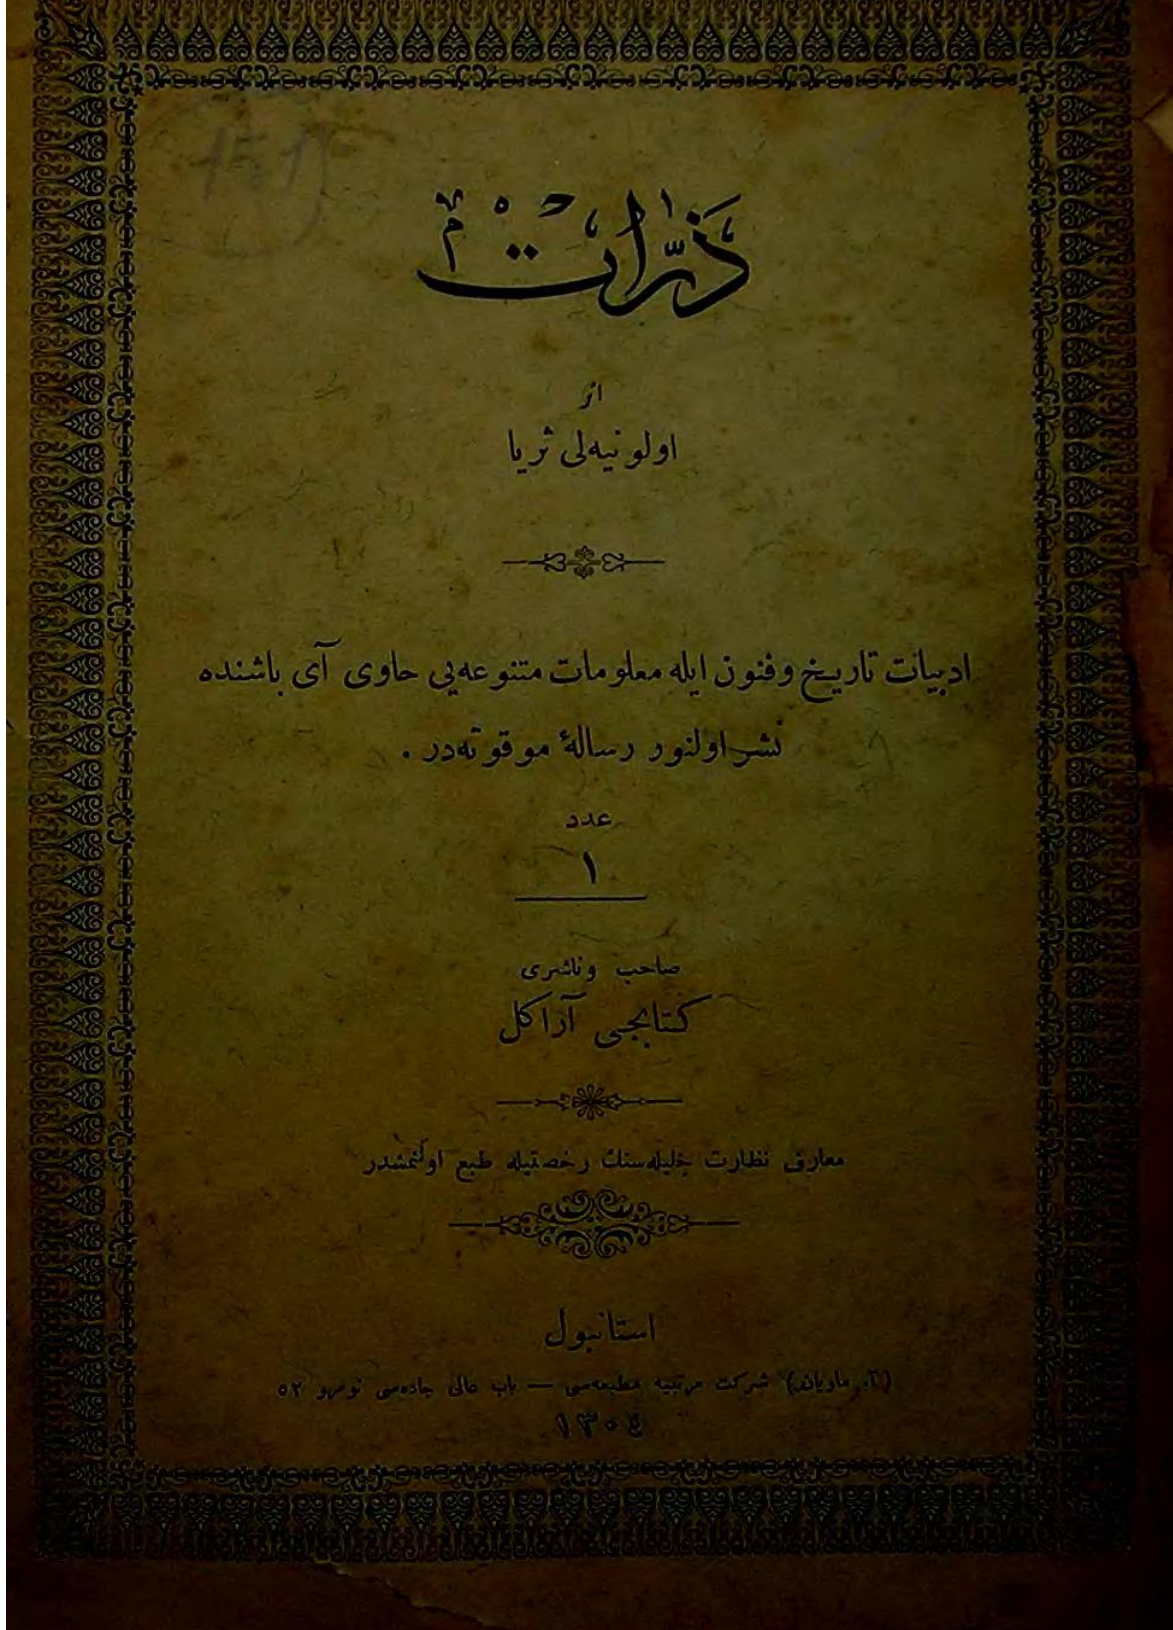 ذرّات
اثر
اولونیه‌لی ثریا
ادبیات تاریخ وفنون ایله معلومات متنوعه‌یی حاوی آی باشنده
نشر اولنور رسالهٔ موقوته‌در .
عدد
١
صاحب وناشری
کتابجی آراکل
معارف نظارت جلیله‌سنك رخصتیله طبع اولنمشدر
استانبول
شرکت مرتبیه مطبعه‌سی — باب عالی جاده‌سی نومرو ٥٢
١٣٠٤